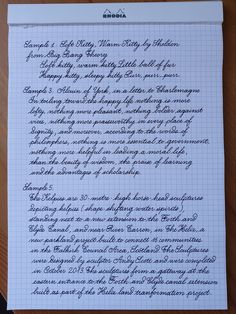 RHODIA
Sample 1. Soft Kitty, Warm Kitty by Sheldon
from Big Bang Theory
Soft kitty, warm kitty Little ball of fur
Happy kitty, sleepy kitty Purr, purr, purr.
Sample 3. Alcuin of York, in a letter to Charlemagne
In toiling toward the happy life nothing is more
lofty, nothing more pleasant, nothing bolder against
vices, nothing more praiseworthy in every place of
dignity; and moreover, according to the words of
philosophers, nothing is more essential to government,
nothing more helpful in leading a moral life,
than the beauty of wisdom, the praise of learning
and the advantages of scholarship.
Sample 5.
The Kelpies are 30-metre-high horse-head sculptures
depicting kelpies (shape-shifting water spirits),
standing next to a new extension to the Forth and
Clyde Canal, and near River Carron, in The Helix, a
new parkland project built to connect 16 communities
in the Falkirk Council Area, Scotland. The Sculptures
were designed by sculptor Andy Scott and were completed
in October 2013. The sculptures form a gateway at the
eastern entrance to the Forth and Clyde canal extension
built as part of the Helix land transformation project.